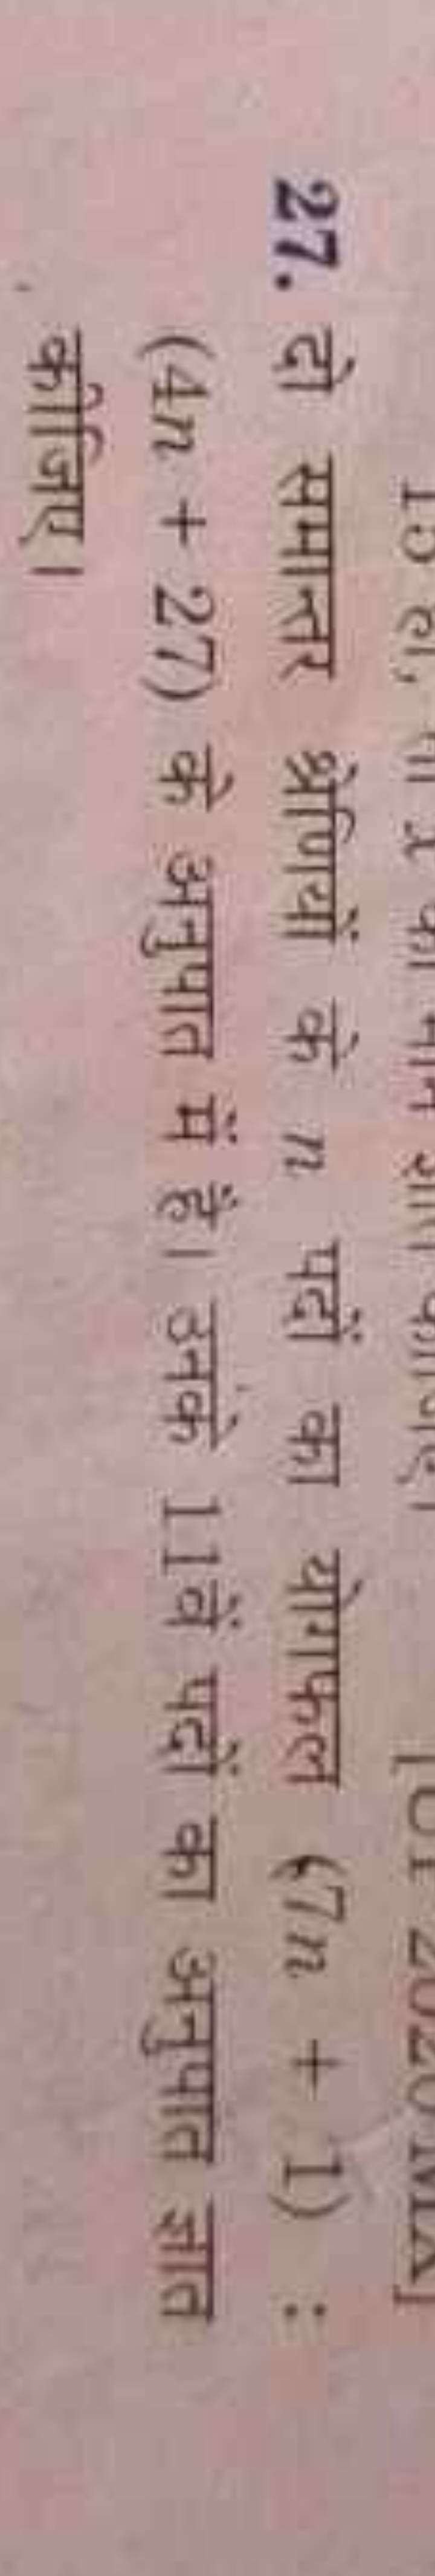 15 हो, तो x का मान ज्ञात कीजिए।
27. दो समान्तर श्रेणियों के n पदों का योगफल (7n + 1) :
(4n + 27) के अनुपात में है। उनके 11वें पदों का अनुपात ज्ञात
कीजिए।